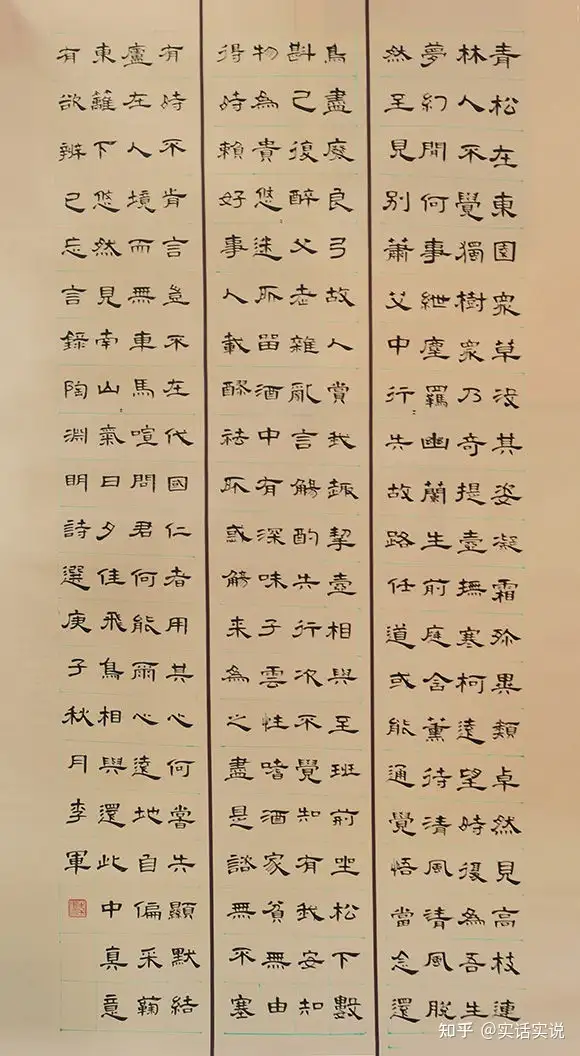 青松在東園眾草没其姿凝霜殄異類卓然見高枝連
林人不覺獨樹眾乃奇提壺撫寒柯遠望時復為吾生
夢幻間何事紲塵羈幽蘭生前庭含薰待清風清風脫
然至見別蕭艾中行〻失故路任道或能通覺悟當念還
鳥盡廢良弓故人賞我趣挈壺相與至班荊坐松下數
斟已復醉父老雜亂言觴酌失行次不覺知有我安知
物為貴悠〻迷所留酒中有深味子雲性嗜酒家貧無由
得時賴好事人載醪祛所惑觴来為之盡是諮無不塞
有時不肯言豈不在伐國仁者用其心何嘗失顯默結
廬在人境而無車馬喧問君何能爾心遠地自偏采菊
東籬下悠然見南山〻氣日夕佳飛鳥相與還此中真意
有欲辨已忘言錄陶淵明詩選庚子秋月李軍
知乎 @实话实说